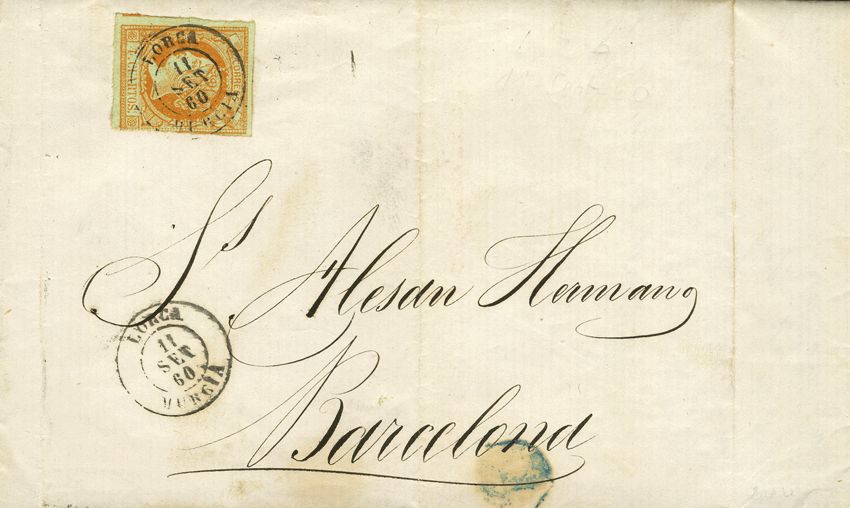 LORCA
11
SET
60
MURCIA
CORREOS
4 CUARTOS.
Ss. Alesan Hermanos
Barcelona
LORCA
11
SET
60
MURCIA